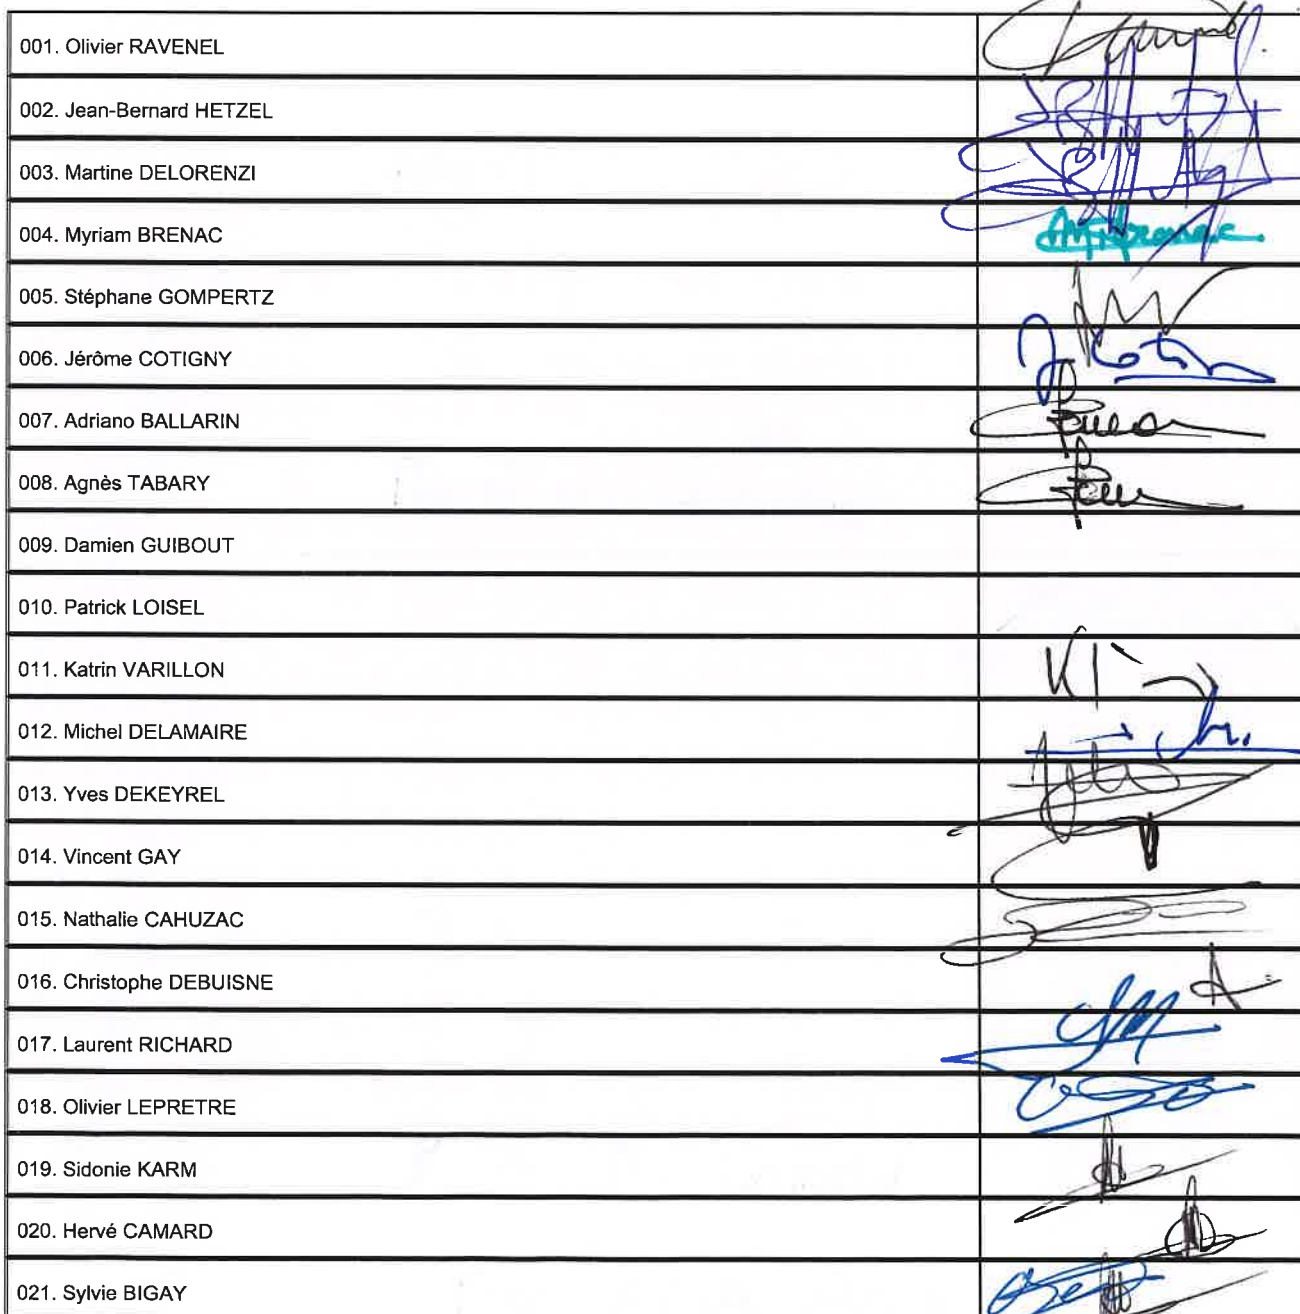 001. Olivier RAVENEL
002. Jean-Bernard HETZEL
003. Martine DELORENZI
004. Myriam BRENAC
005. Stéphane GOMPERTZ
006. Jérôme COTIGNY
007. Adriano BALLARIN
008. Agnès TABARY
009. Damien GUIBOUT
010. Patrick LOISEL
011. Katrin VARILLON
012. Michel DELAMAIRE
013. Yves DEKEYREL
014. Vincent GAY
015. Nathalie CAHUZAC
016. Christophe DEBUISNE
017. Laurent RICHARD
018. Olivier LEPRETRE
019. Sidonie KARM
020. Hervé CAMARD
021. Sylvie BIGAY